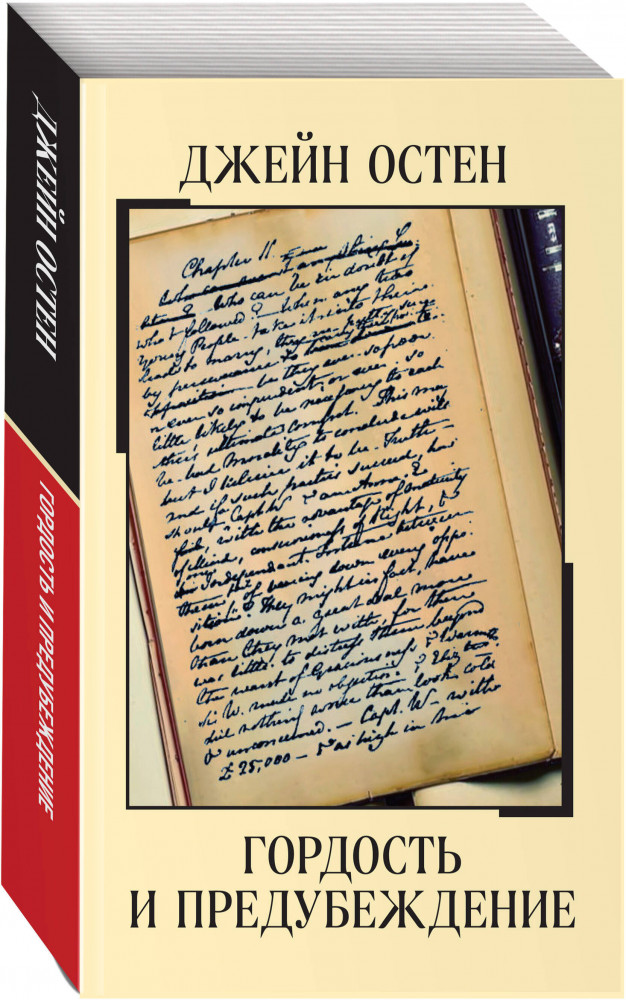 ДЖЕЙН ОСТЕН
ГОРДОСТЬ И ПРЕДУБЕЖДЕНИЕ
ДЖЕЙН ОСТЕН
Chapter 11.
Who can be in doubt of
what followed? When any two
Young People take it into their
heads to marry, they are pretty sure
by perseverance to
be they ever so poor,
or ever so imprudent, or ever so
little likely to be necessary to each
other's ultimate comfort. This may
be bad Morality to conclude with
but I believe it to be Truth—
and if such parties succeed, how
should Capt W. & an Anne E
fail, with the advantage of Maturity
of Mind, consciousness of Right, &
one Independant Fortune between
them fail of bearing down every oppo:
sition? They might in fact, have
born down a great deal more
than they met with, for there
was little to distress them beyond
the want of Graciousness & Warmth
Sir W. made no objection, & Eliz:th
did nothing worse than look cold
& unconcerned.— Capt. W. with
£25,000— & as high in his
ГОРДОСТЬ
И ПРЕДУБЕЖДЕНИЕ